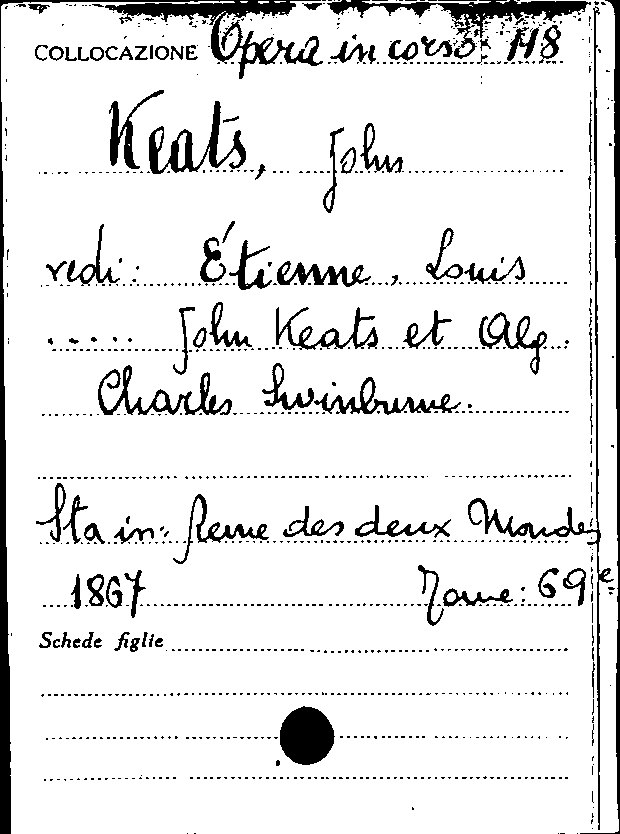 COLLOCAZIONE Opera in corso: 118
Keats, John
vedi: Étienne, Louis
..... John Keats et Alg.
Charles Swinburne.
Sta in: Revue des deux Mondes
1867 Tome: 69e
Schede figlie